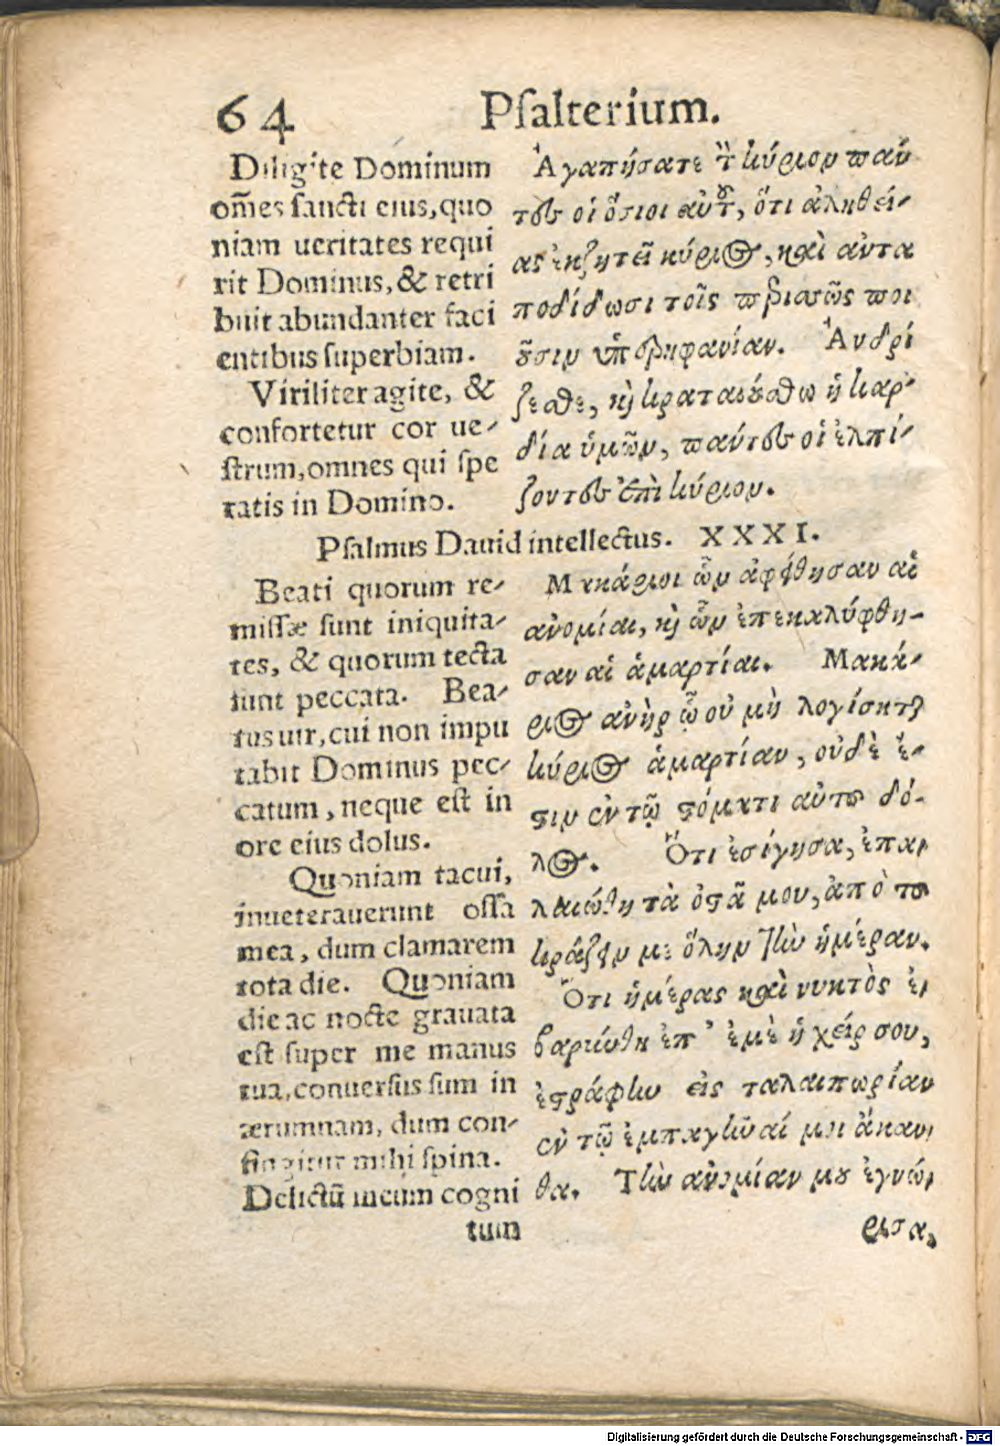 64 Psalterium.
Diligite Dominum
om̄es sancti eius, quo
niam ueritates requi
rit Dominus, & retri
buit abundanter faci
entibus superbiam.
Viriliter agite, &
confortetur cor ue-
strum, omnes qui spe
ratis in Domino.
Ἀγαπήσατε τ̀ κύριον πάν
τες οἱ ὅσιοι αὐτȣ͂, ὅτι ἀληθεί-
ας ἐκζητεῖ κύριος, καὶ ἀντα
ποδίδωσι τοῖς περισσῶς ποι
ȣ͂σιν ὑπερηφανίαν. Ἀνδρί
ζεσθε, κ̀ κραταιȣ́σθω ἡ καρ-
δία ὑμῶν, πάντες οἱ ἐλπί-
ζοντες ἐπὶ κύριον.
Psalmus Dauid intellectus. XXXI.
Beati quorum re-
missæ sunt iniquita-
tes, & quorum tecta
sunt peccata. Bea-
tus uir, cui non impu
tabit Dominus pec-
catum, neque est in
ore eius dolus.
Quoniam tacui,
inueterauerunt ossa
mea, dum clamarem
tota die. Quoniam
die ac nocte grauata
est super me manus
tua, conuersus sum in
ærumnam, dum con-
fingitur mihi spina.
Delictū meum cogni
tum
Μακάριοι ὧν ἀφέθησαν αἱ
ἀνομίαι, κ̀ ὧν ἐπεκαλύφθη-
σαν αἱ ἁμαρτίαι. Μακά-
ριος ἀνὴρ ᾧ οὐ μὴ λογίσηται
κύριος ἁμαρτίαν, οὐδὲ ἔ-
ςιν ἐν τῷ ςόματι αὐτȣ͂ δό-
λος. Ὅτι ἐσίγησα, ἐπα-
λαιώθη τὰ ὀςᾶ μου, ἀπὸ τȣ͂
κράζειν με ὅλην τὴν ἡμέραν.
Ὅτι ἡμέρας καὶ νυκτὸς ἐ-
βαρύνθη ἐπ' ἐμὲ ἡ χείρ σου,
ἐςράφην εἰς ταλαιπωρίαν
ἐν τῷ ἐμπαγῆναί μοι ἄκαν-
θα. Τὴν ἀνομίαν μȣ ἐγνώ-
ρισα,
Digitalisierung gefördert durch die Deutsche Forschungsgemeinschaft - DFG